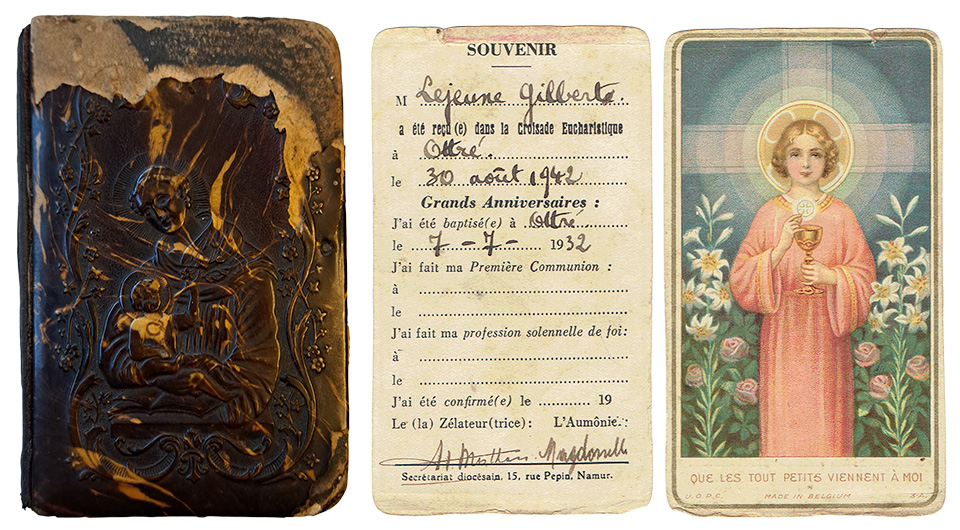 SOUVENIR
M Lejeune Gilberte
a été reçu(e) dans la Croisade Eucharistique
à Ottré.
le 30 août 1942
Grands Anniversaires :
J'ai été baptisé(e) à Ottré
le 7 - 7 - 1932
J'ai fait ma Première Communion :
à
le
J'ai fait ma profession solennelle de foi :
à
le
J'ai été confirmé(e) le ............ 19
Le (la) Zélateur(trice) : L'Aumônie. :
Secrétariat diocésain, 15, rue Pepin, Namur.
QUE LES TOUT PETITS VIENNENT À MOI
U.O.P.C. MADE IN BELGIUM